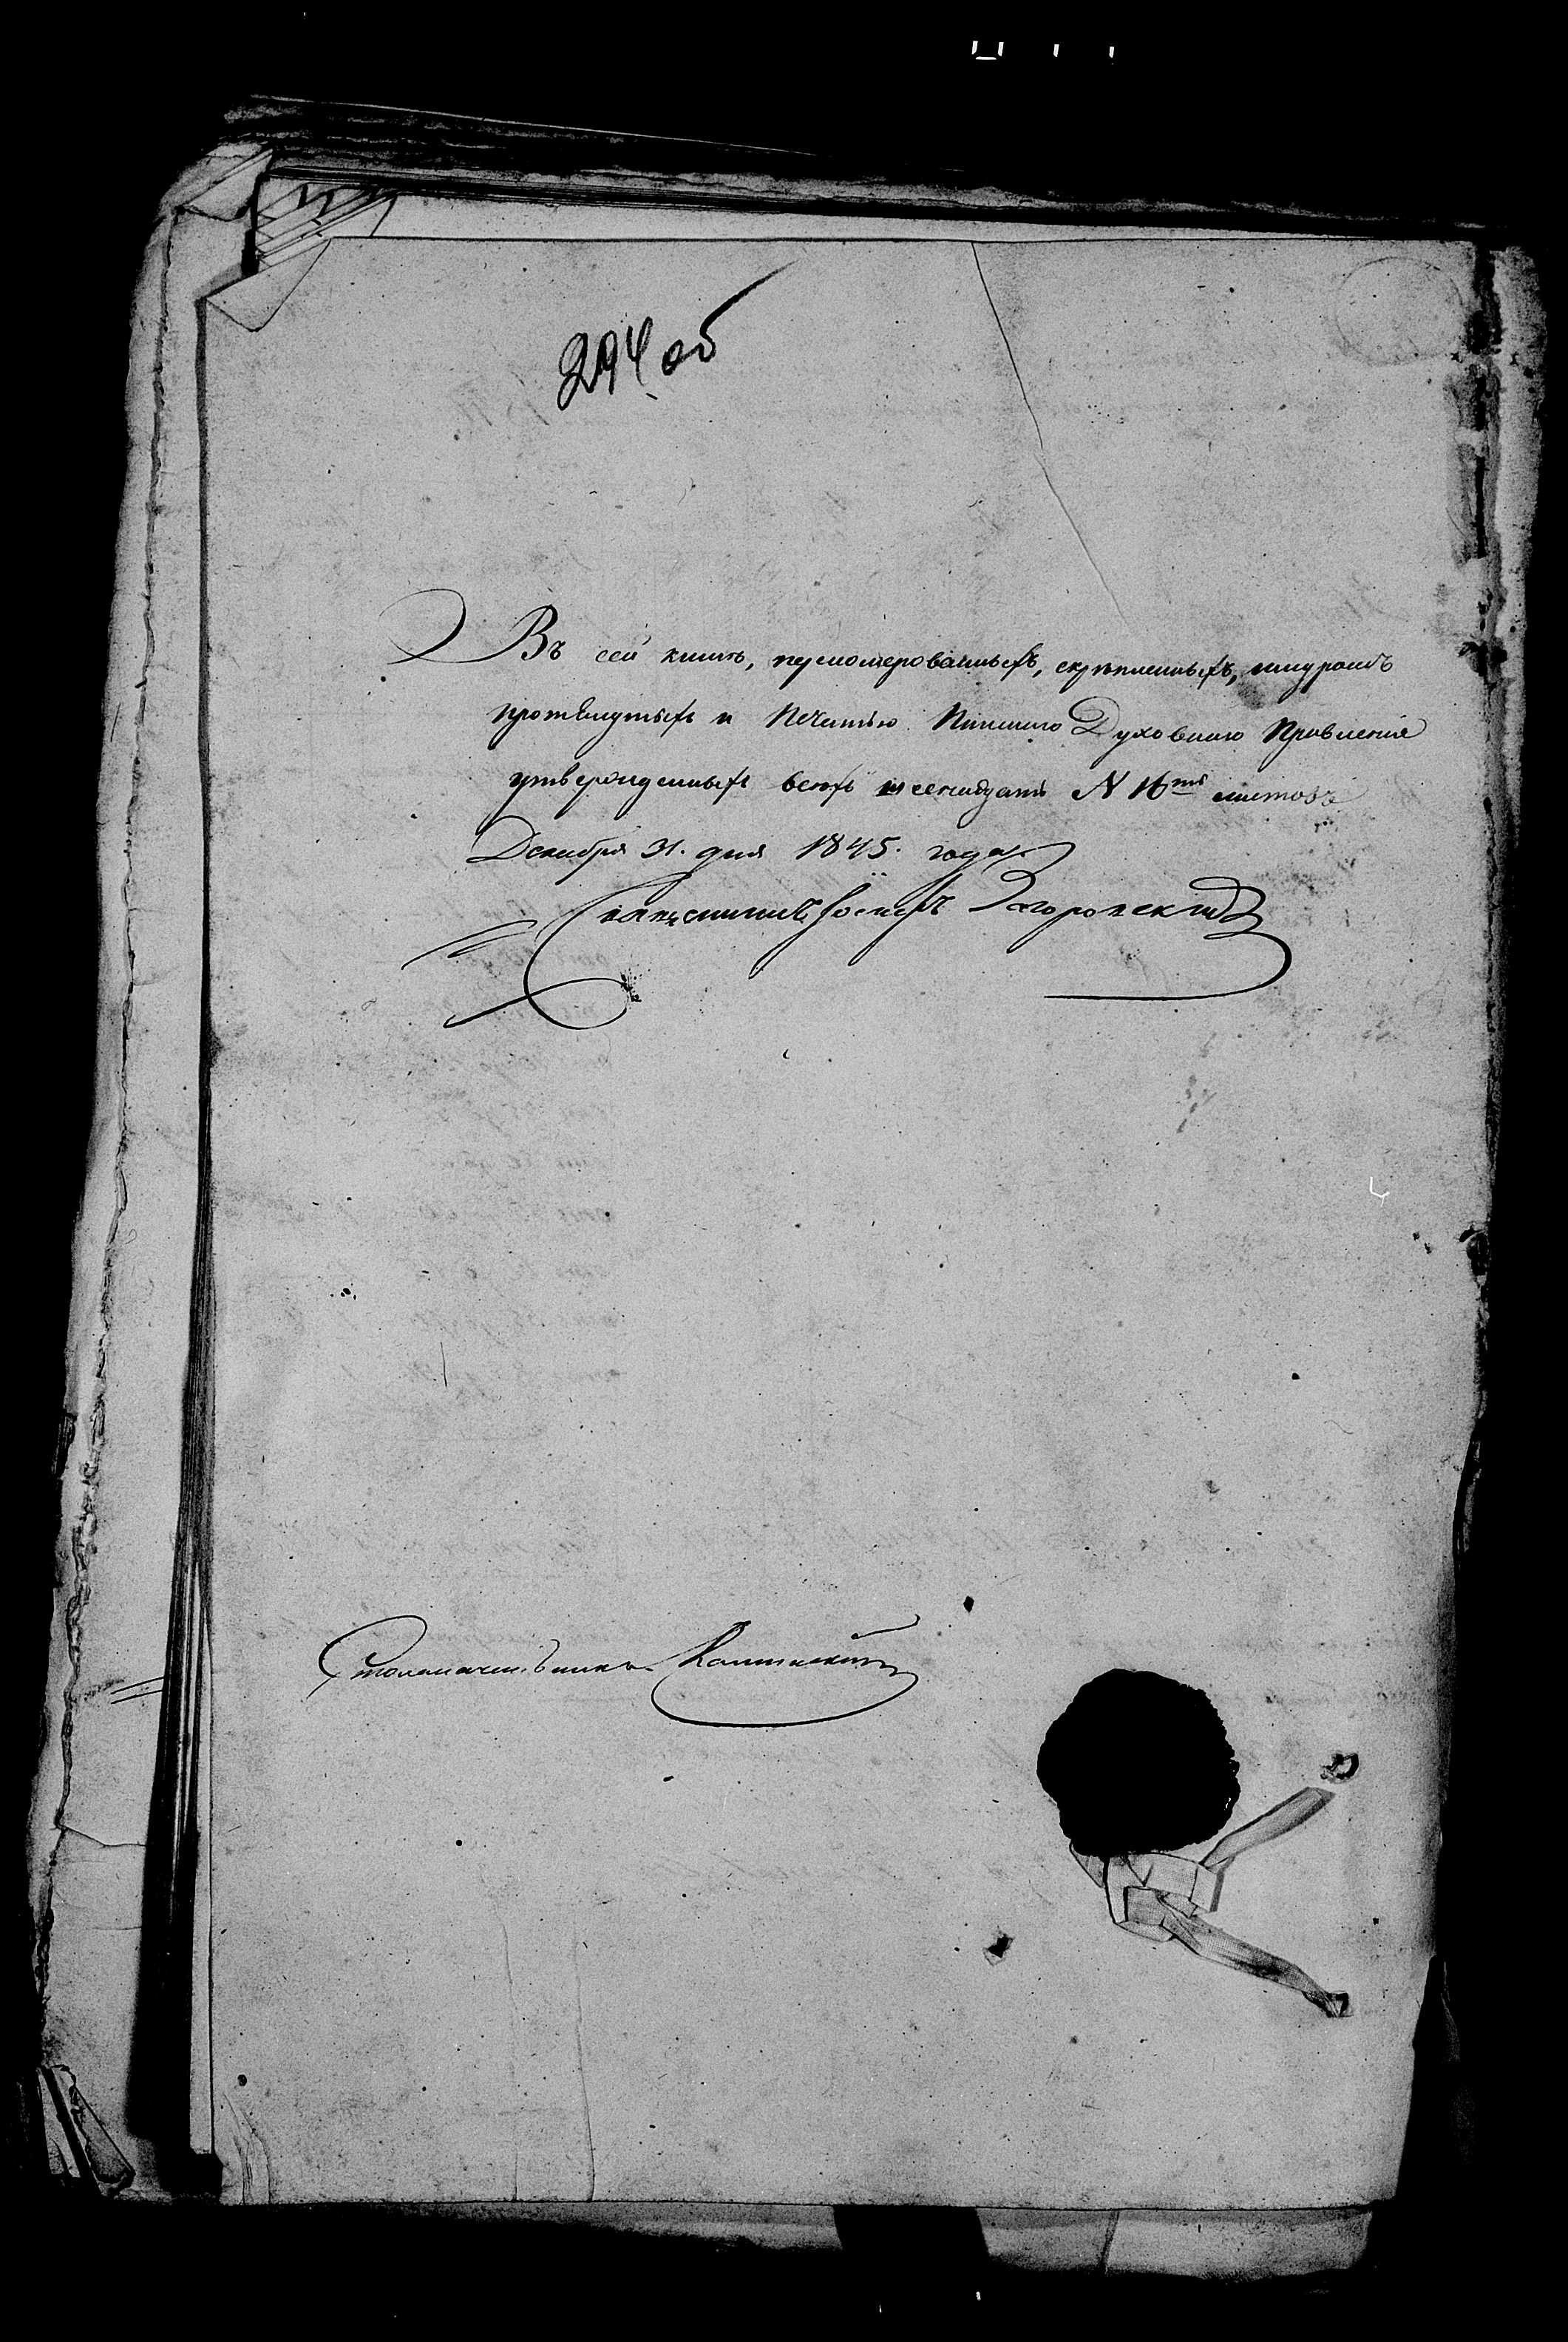 294 об
Въ сей книгѣ, перномерованныхъ, скрѣпленныхъ, шнуромъ
протянутыхъ и Печатью Пинскаго Духовнаго Правленія
утвержденныхъ всехъ шеснадзать N 16ть листовъ
Декабря 31. дня 1845. года.
Священникъ Іосифъ Загоровскій
Столоначальникъ